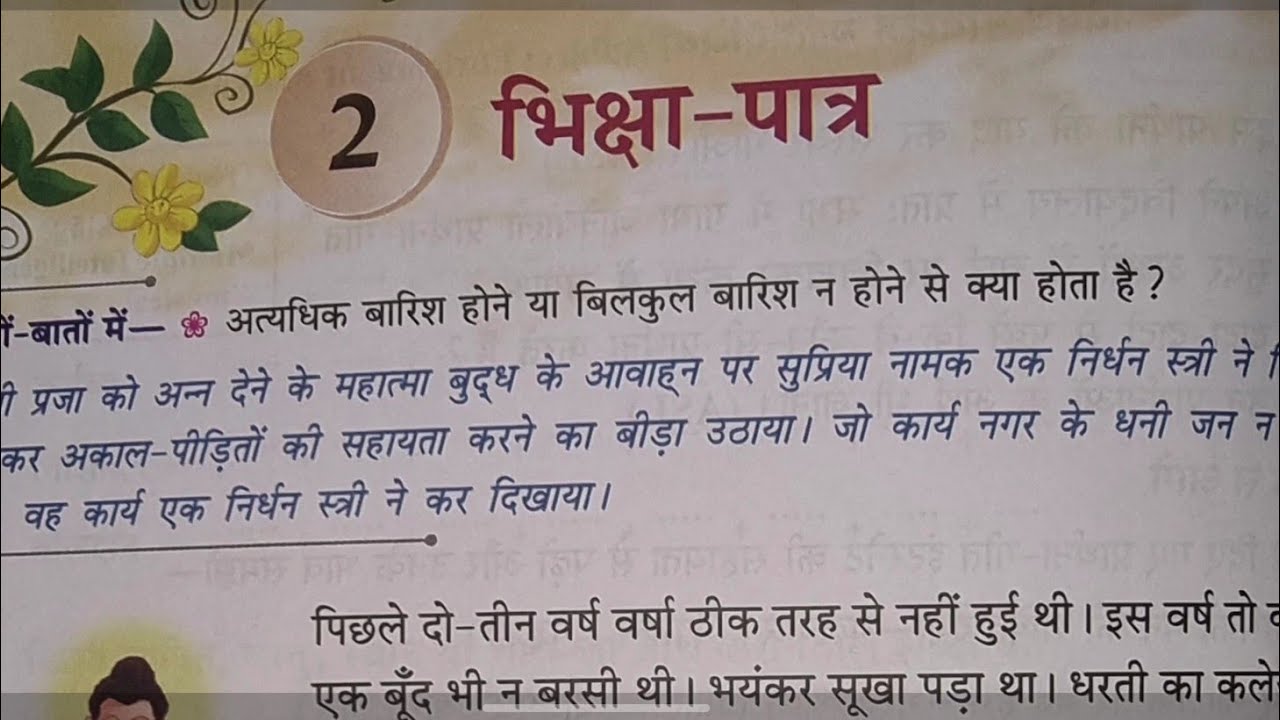 2
भिक्षा-पात्र
-बातों में— अत्यधिक बारिश होने या बिलकुल बारिश न होने से क्या होता है?
प्रजा को अन्न देने के महात्मा बुद्ध के आवाह्न पर सुप्रिया नामक एक निर्धन स्त्री ने
कर अकाल-पीड़ितों की सहायता करने का बीड़ा उठाया। जो कार्य नगर के धनी जन न
वह कार्य एक निर्धन स्त्री ने कर दिखाया।
पिछले दो-तीन वर्ष वर्षा ठीक तरह से नहीं हुई थी। इस वर्ष तो
एक बूँद भी न बरसी थी। भयंकर सूखा पड़ा था। धरती का